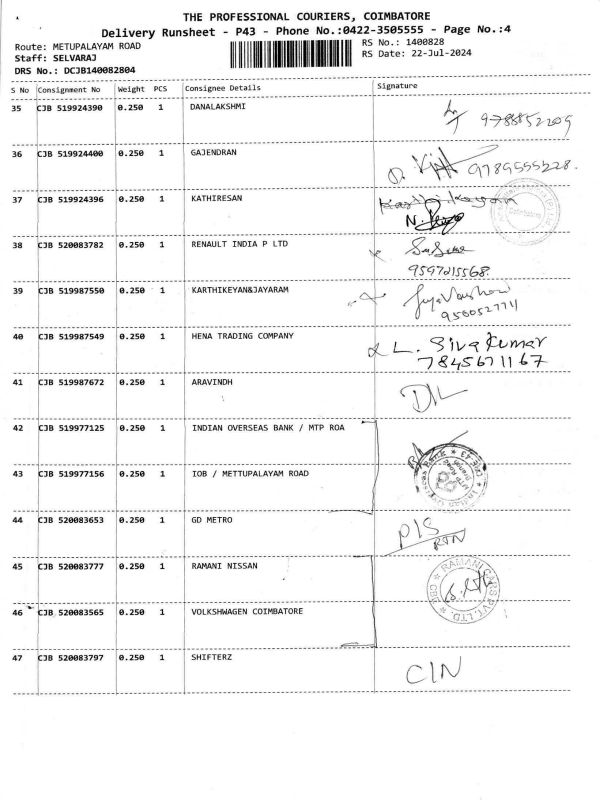 THE PROFESSIONAL COURIERS, COIMBATORE
Delivery Runsheet - P43 - Phone No.:0422-3505555 - Page No.:4
Route: METUPALAYAM ROAD RS No.: 1400828
Staff: SELVARAJ RS Date: 22-Jul-2024
DRS No.: DCJB140082804
S No Consignment No Weight PCS Consignee Details Signature
35 CJB 519924390 0.250 1 DANALAKSHMI
36 CJB 519924400 0.250 1 GAJENDRAN
9789555228.
37 CJB 519924396 0.250 1 KATHIRESAN
38 CJB 520083782 0.250 1 RENAULT INDIA P LTD
9597215568.
39 CJB 519987550 0.250 1 KARTHIKEYAN&JAYARAM
40 CJB 519987549 0.250 1 HENA TRADING COMPANY L. Siva Kumar
7845671167
41 CJB 519987672 0.250 1 ARAVINDH
42 CJB 519977125 0.250 1 INDIAN OVERSEAS BANK / MTP ROA
43 CJB 519977156 0.250 1 IOB / METTUPALAYAM ROAD
44 CJB 520083653 0.250 1 GD METRO
45 CJB 520083777 0.250 1 RAMANI NISSAN RAMANI CARS PVT. LTD.
46 CJB 520083565 0.250 1 VOLKSHWAGEN COIMBATORE
47 CJB 520083797 0.250 1 SHIFTERZ
CIN